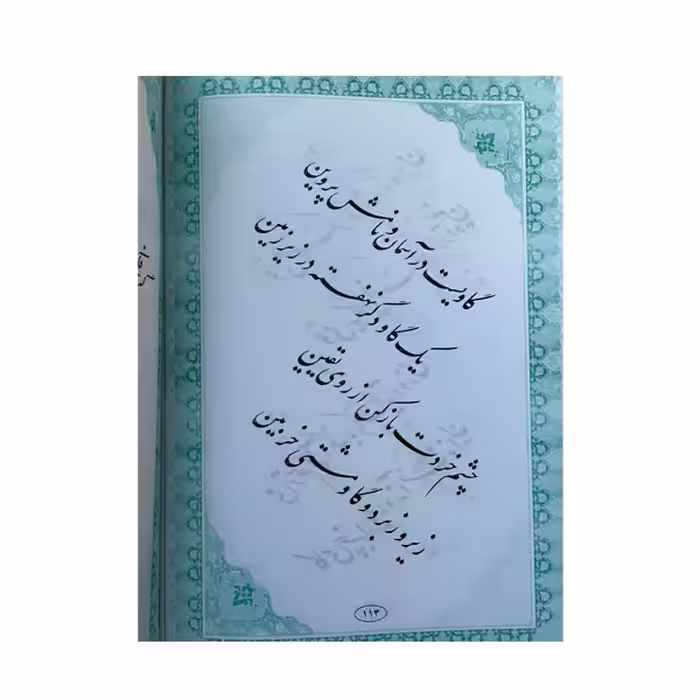 گاویست در آسمان و نامش پروین
یک گاو دگر نهفته در زیر زمین
چشم خردت باز کن از روی یقین
زیر و زبر دو گاو مشتی خر بین
۱۱۳